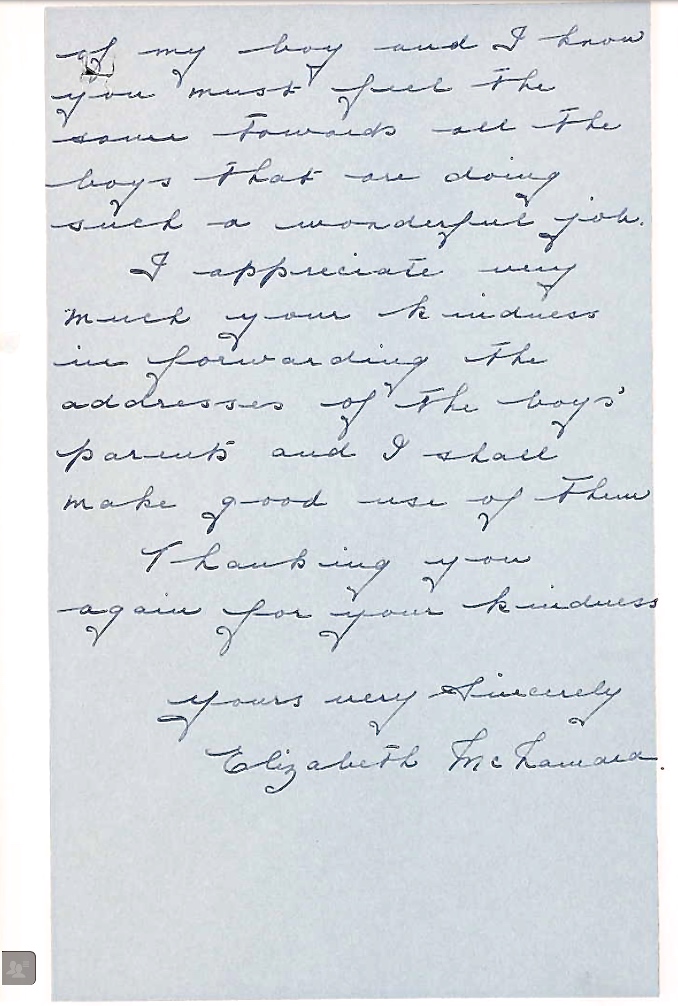 of my boy and I know
you must feel the
same towards all the
boys that are doing
such a wonderful job.
I appreciate very
much your kindness
in forwarding the
addresses of the boys'
parents and I shall
make good use of them
Thanking you
again for your kindness
yours very Sincerely
Elizabeth McNamara.